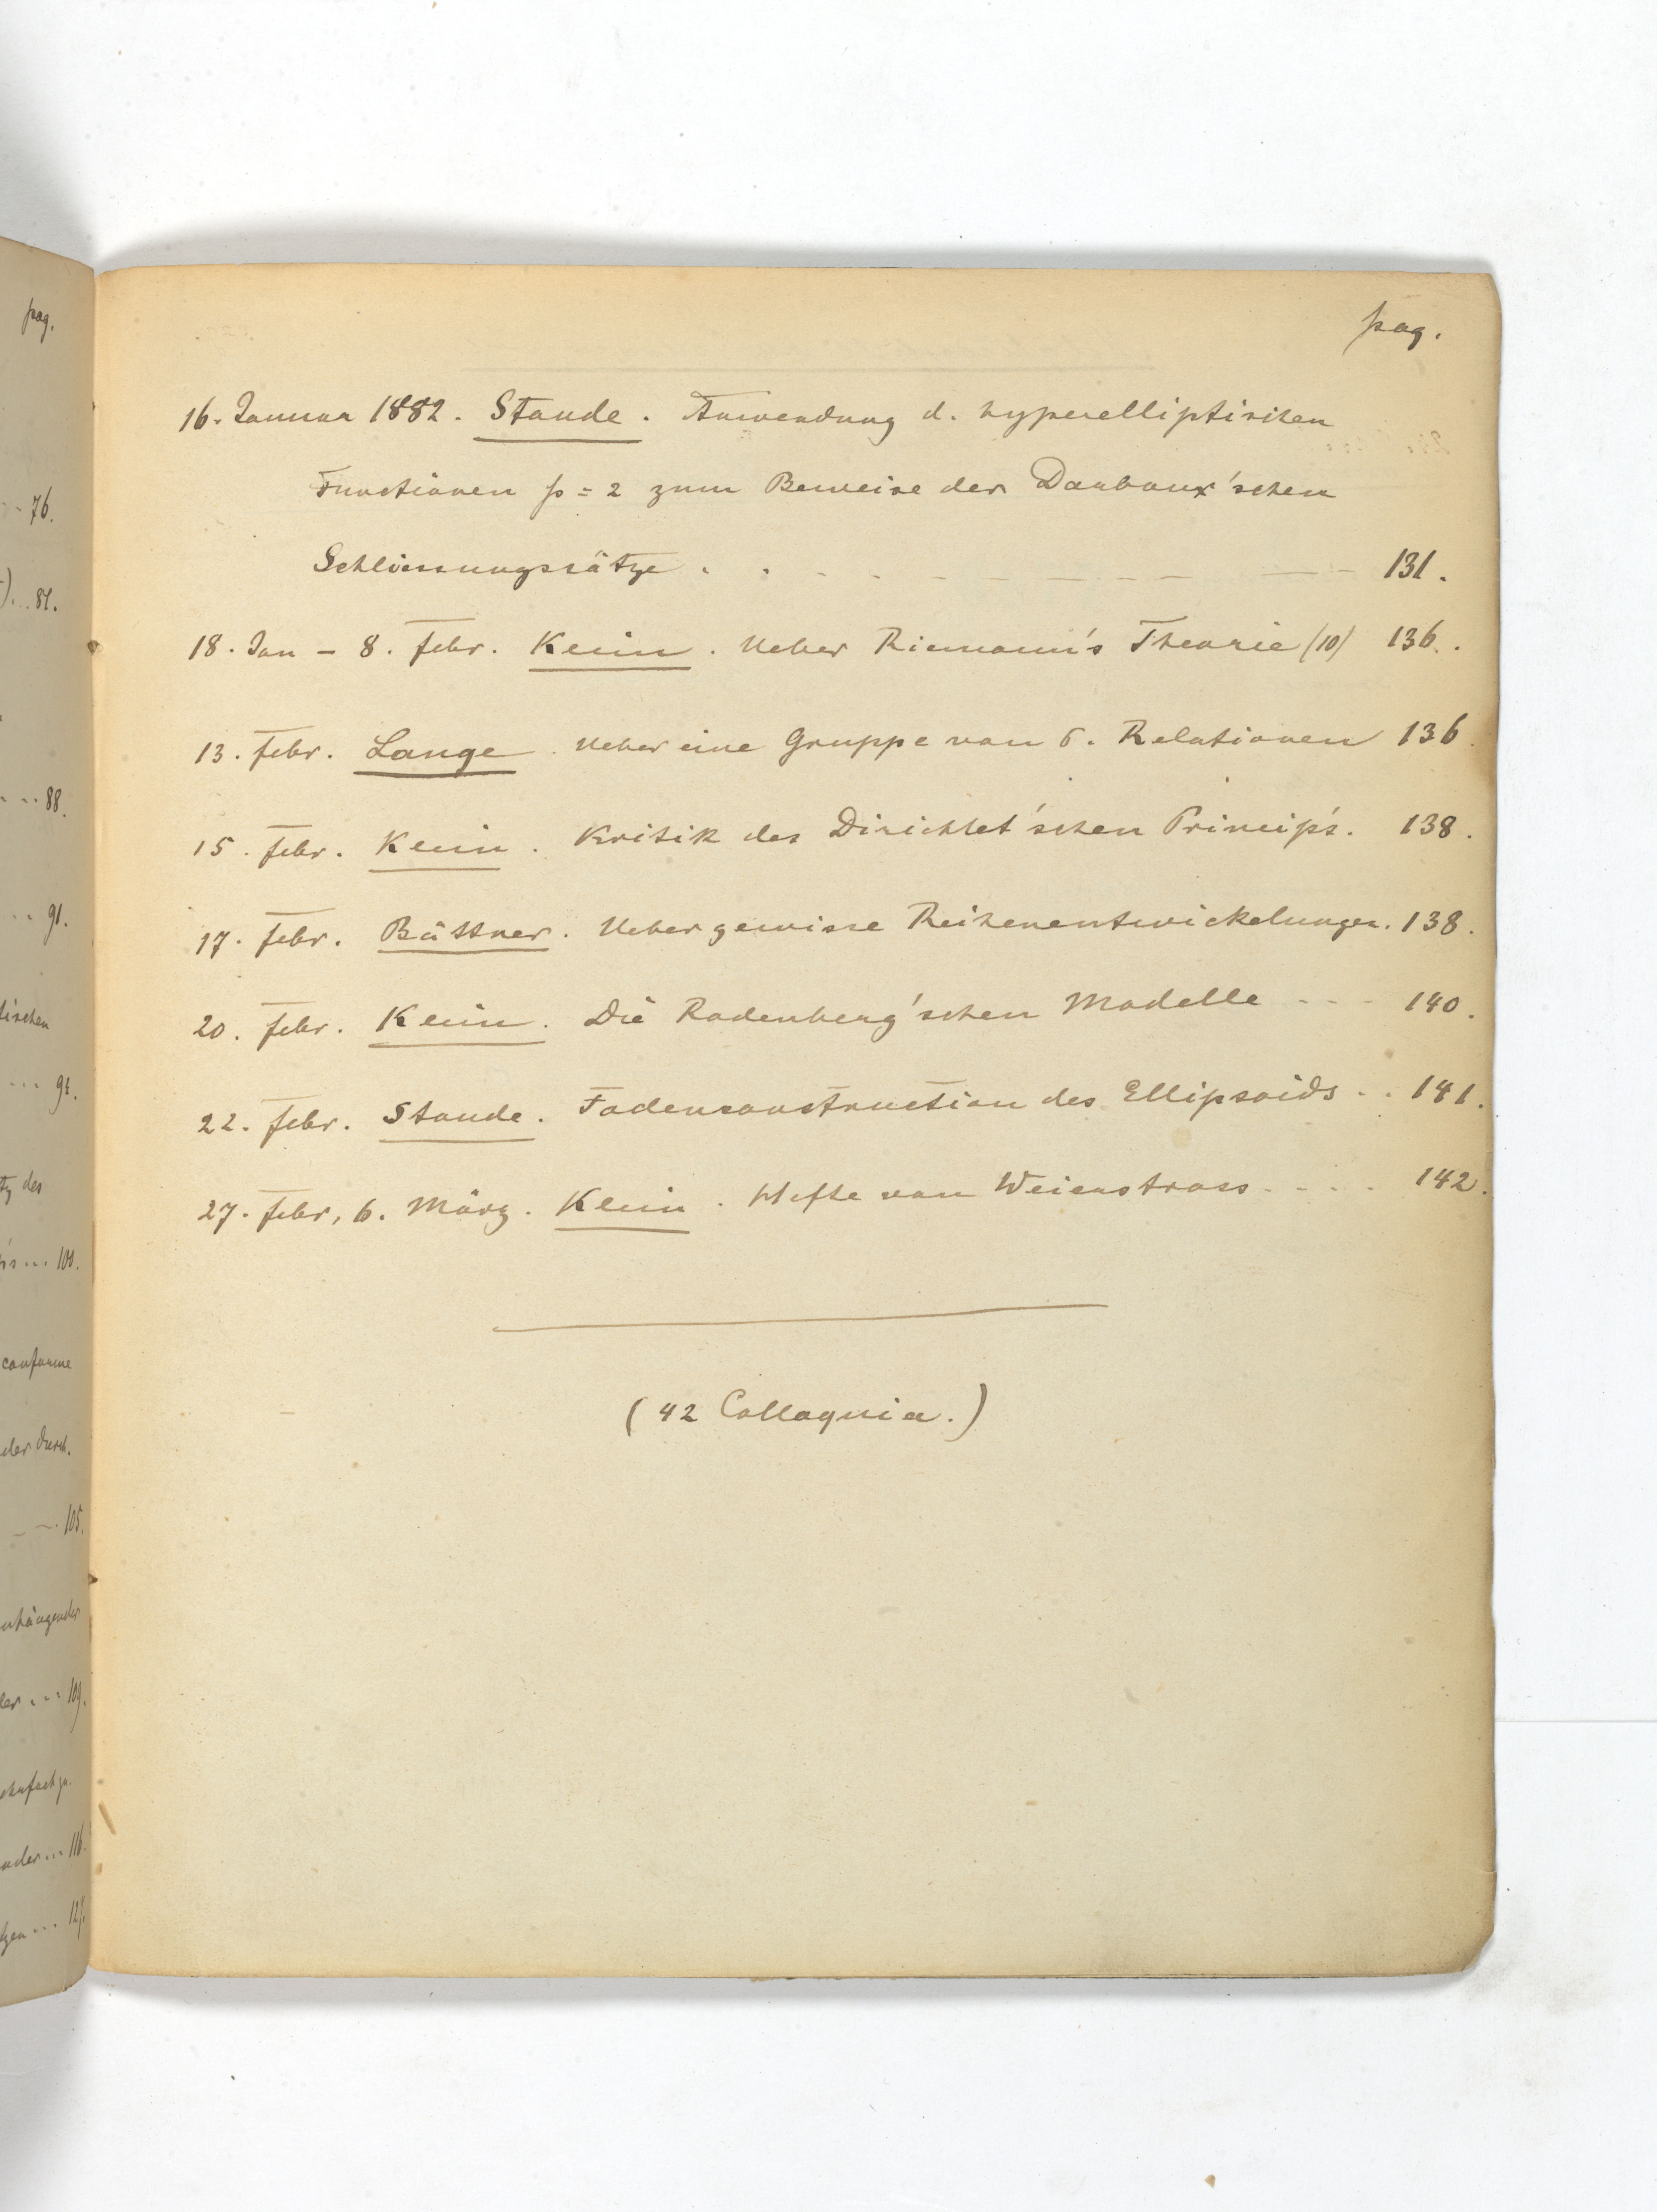 pag.
76.
81.
88.
91.
tischen
des
100.
conforme
der Durch-
105.
109.
116.
pag.
16. Januar 1882. Staude. Anwendung d. hyperelliptischen
Functionen p = 2 zum Beweise der Darboux'schen
Schliessungssätze . . - - - - - - - - - 131.
18. Jan – 8. Febr. Klein. Ueber Riemann's Theorie (10) 136.
13. Febr. Lange. Ueber eine Gruppe von σ. Relationen 136.
15. Febr. Klein. Kritik des Dirichlet'schen Princip's. 138.
17. Febr. Büttner. Ueber gewisse Reihenentwickelungen. 138.
20. Febr. Klein. Die Rodenberg'schen Modelle - - - 140.
22. Febr. Staude. Fadenconstruction des Ellipsoids . . 141.
27. Febr, 6. März. Klein. Hefte von Weierstrass . - . . 142.
(42 Colloquia.)